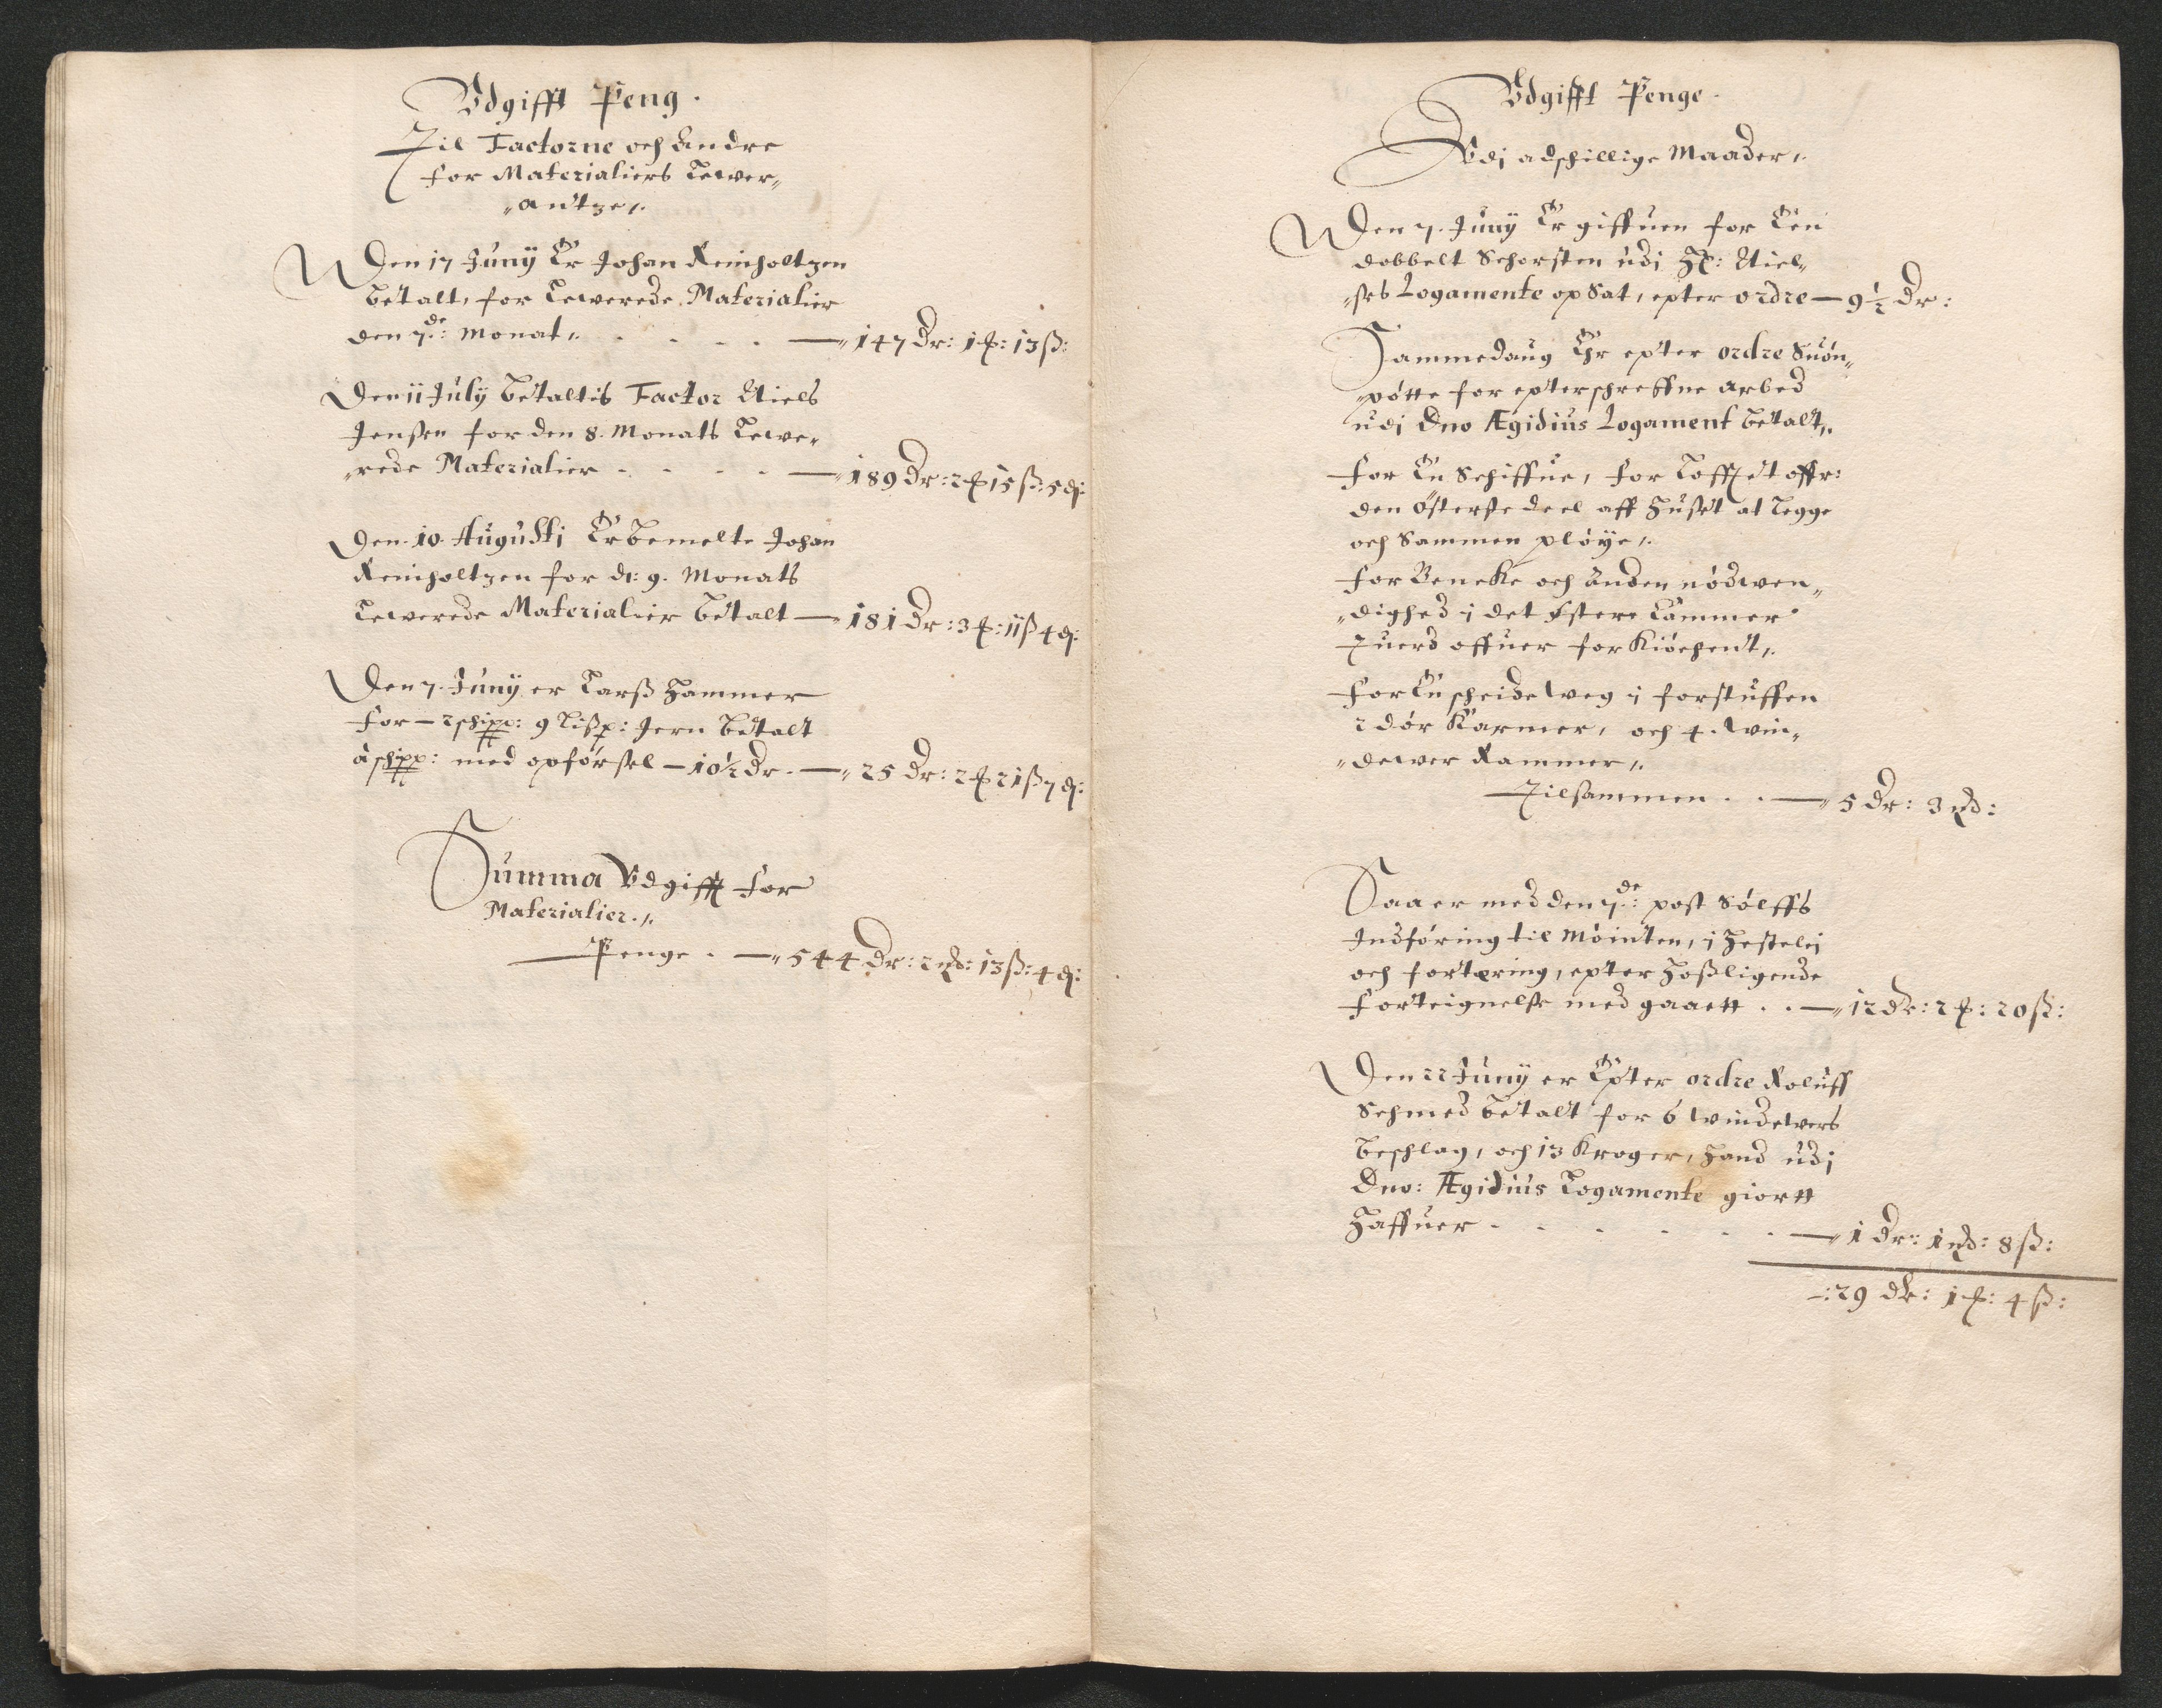 Vdgifft Peng.
Til Factorne och Andre
for Materialiers Lewer„
„antze,.
Den 17 Junij Er Johan Reinholtzen
betalt, for Lewerede Materialier
den 7de: Monat,. . . . . — „147 Dr: 1 ꝑ: 13 ß:
Den 11 Julij betaltis Factor Niels
Jenßen for den 8. Monats Lewe„
„rede Materialier . . . . — „189 Dr: 2 ꝑ 15 ß: 5 ₰:
Den 10 Augustj Er bemelte Johan
Reinholtzen for d: 9. Monats
Lewerede Materialier betalt — „181 Dr: 3 ꝑ: 11 ß 4 ₰:
Den 7. Junij er Larß Hammer
for — 2 schipp: 9 Lißp: Jern betalt
à schipp: med opførsel — 10½ Dr. — „25 Dr: 2 ꝑ 21 ß 7 ₰:
Summa Vdgifft for
Materialier.,.
Penge . — „544 Dr: 2 ꝑ: 13 ß: 4 ₰:
Vdgifft Penge.
Vdj adschillige Maader,.
Den 7. Junij Er giffuen for Een
dobbelt Schorsten udj H: Niel„
„ses Logamente opSat, epter ordre — 9½ Dr:
Sammedaug Ehr epter ordre Suøn„
„pøtte for epterschreffne arbed
udj Dno Ægidius Logament betalt,.
for En Schiffue, for Lofftet offr:
den østerste deel aff Huset at Legge
och Sammen pløye,.
for Bencke och anden nødwen„
„dighed i det Østere Cammer
Tuerd offuer for Kiøchent,.
for En scheide weg i forstuffen
2 dør Karmer, och 4. win„
„dewer Rammer,.
Tilsammen . . — „5 Dr: 3 ꝑ:
Saa er med den 7de: post Sølffs
Indføring til Møinten, i Hestelej
och fortæring, epter Hoßligende
Forteignelse med gaaett . . — „12 dr: 2 ꝑ: 20 ß:
Den 22 Junij er Epter ordre Roluff
Schmed betalt for 6 windewers
beschlag, och 13 Kroger, Hand udj
Dno: Ægidius Logamente giortt
Haffuer . . . . . . — „1 Dr: 1 ꝑ: 8 ß:
—: 29 dr: 1 ꝑ: 4 ß: